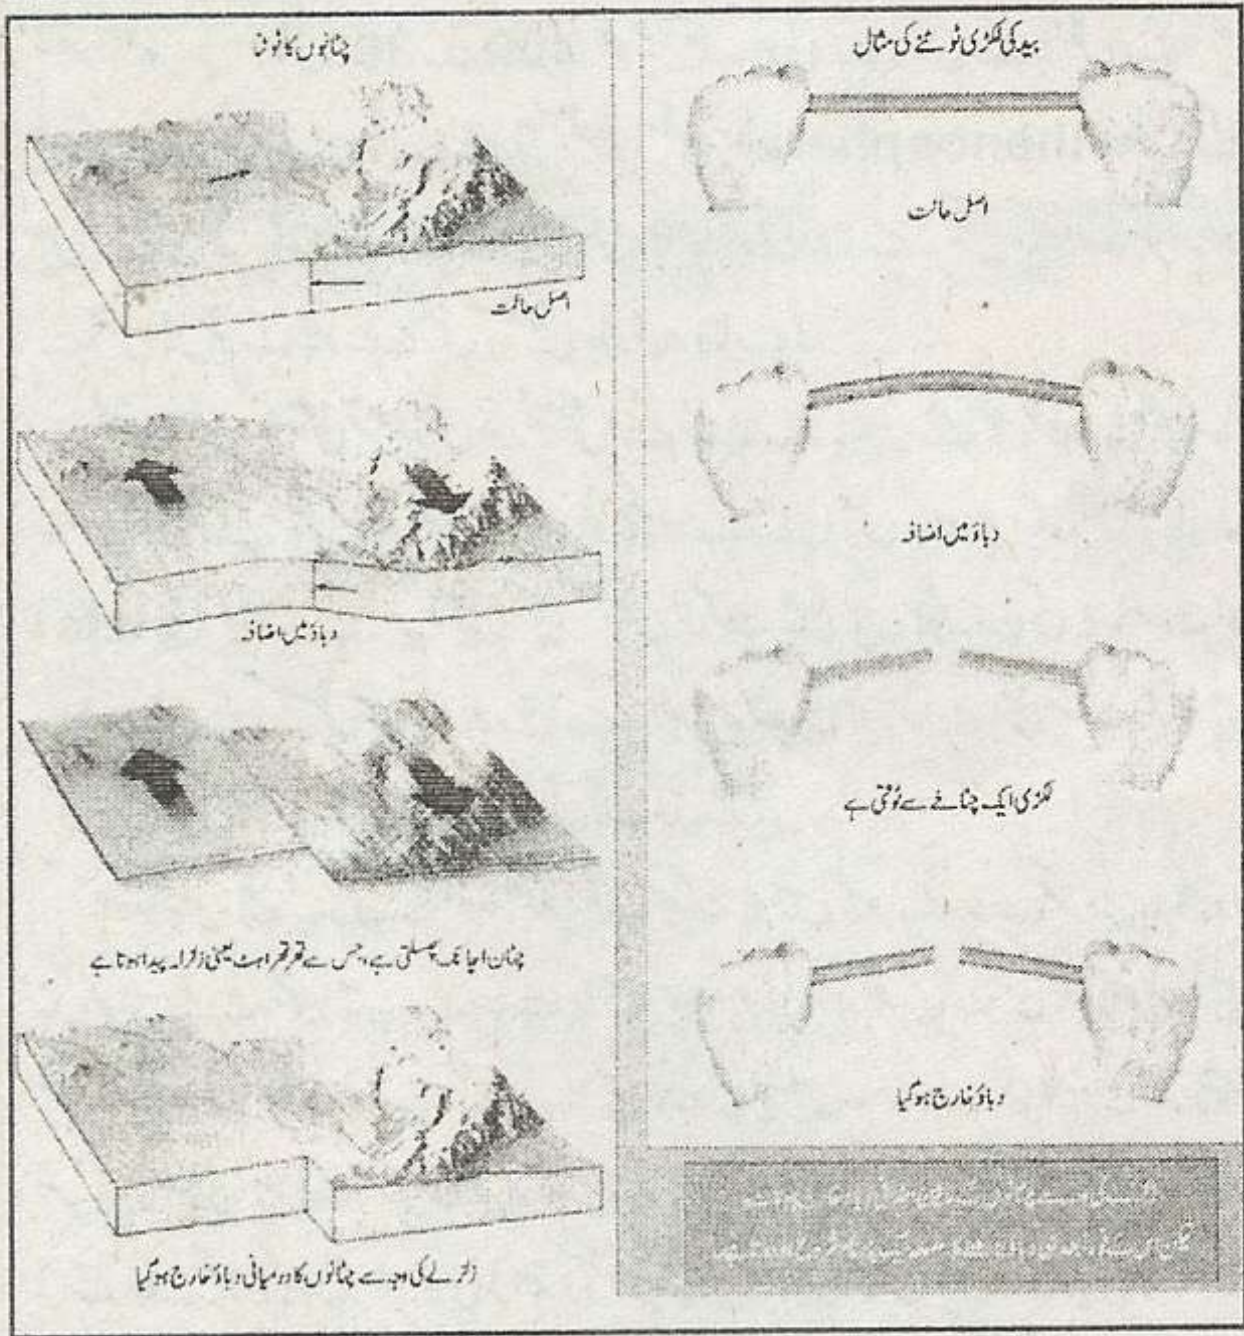 بید کی لکڑی ٹوٹنے کی مثال
اصل حالت
دباؤ میں اضافہ
لکڑی ایک چٹاخے سے ٹوٹتی ہے
دباؤ خارج ہوگیا
چٹانوں کا ٹوٹنا
اصل حالت
دباؤ میں اضافہ
چٹان اچانک پھسلتی ہے، جس سے تھرتھراہٹ یعنی زلزلہ پیدا ہوتا ہے
زلزلے کی وجہ سے چٹانوں کا درمیانی دباؤ خارج ہوگیا